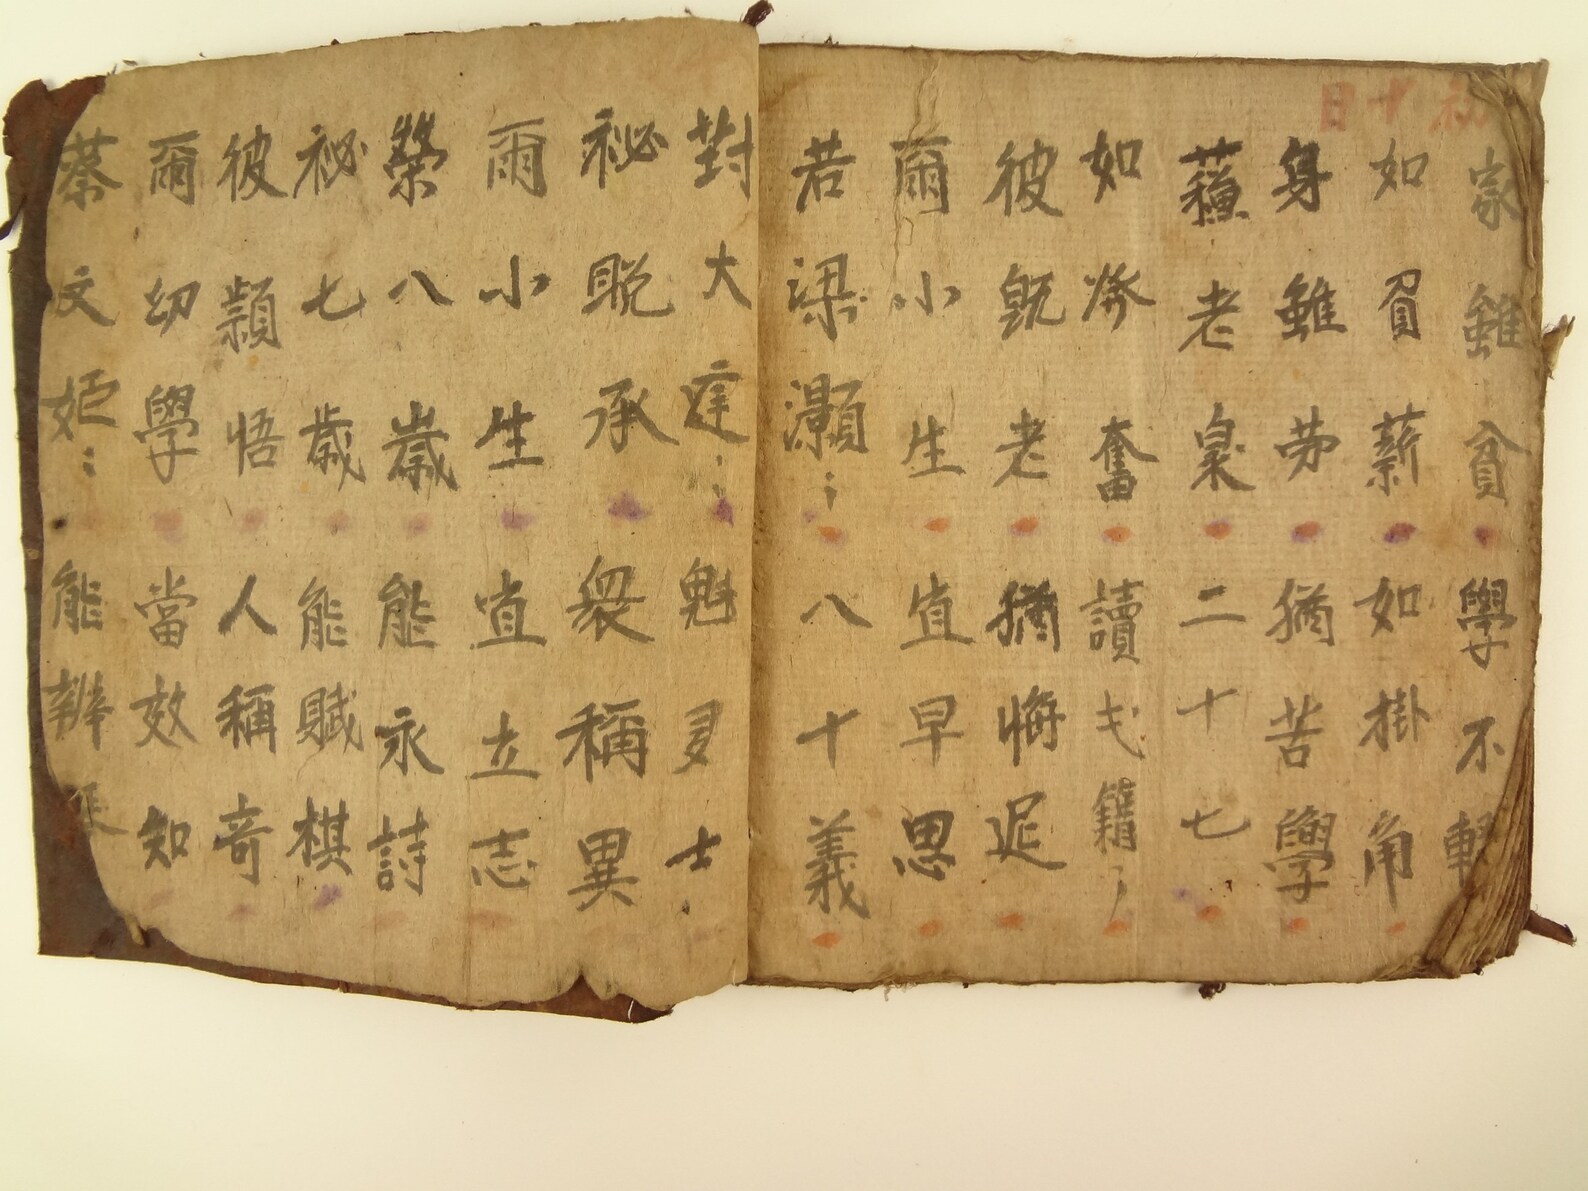 初十日
家雖貧學不輟
如負薪如掛角
身雖劳猶苦學
蘓老泉二十七
如發奮讀弌籍
彼既老猶悔遲
爾小生宜早思
若梁灝八十義
對大廷魁多士
祕既承衆稱異
爾小生宜立志
榮八歲能永詩
祕七歲能賦棋
彼穎悟人稱奇
爾幼學當效知
蔡文姬能辨